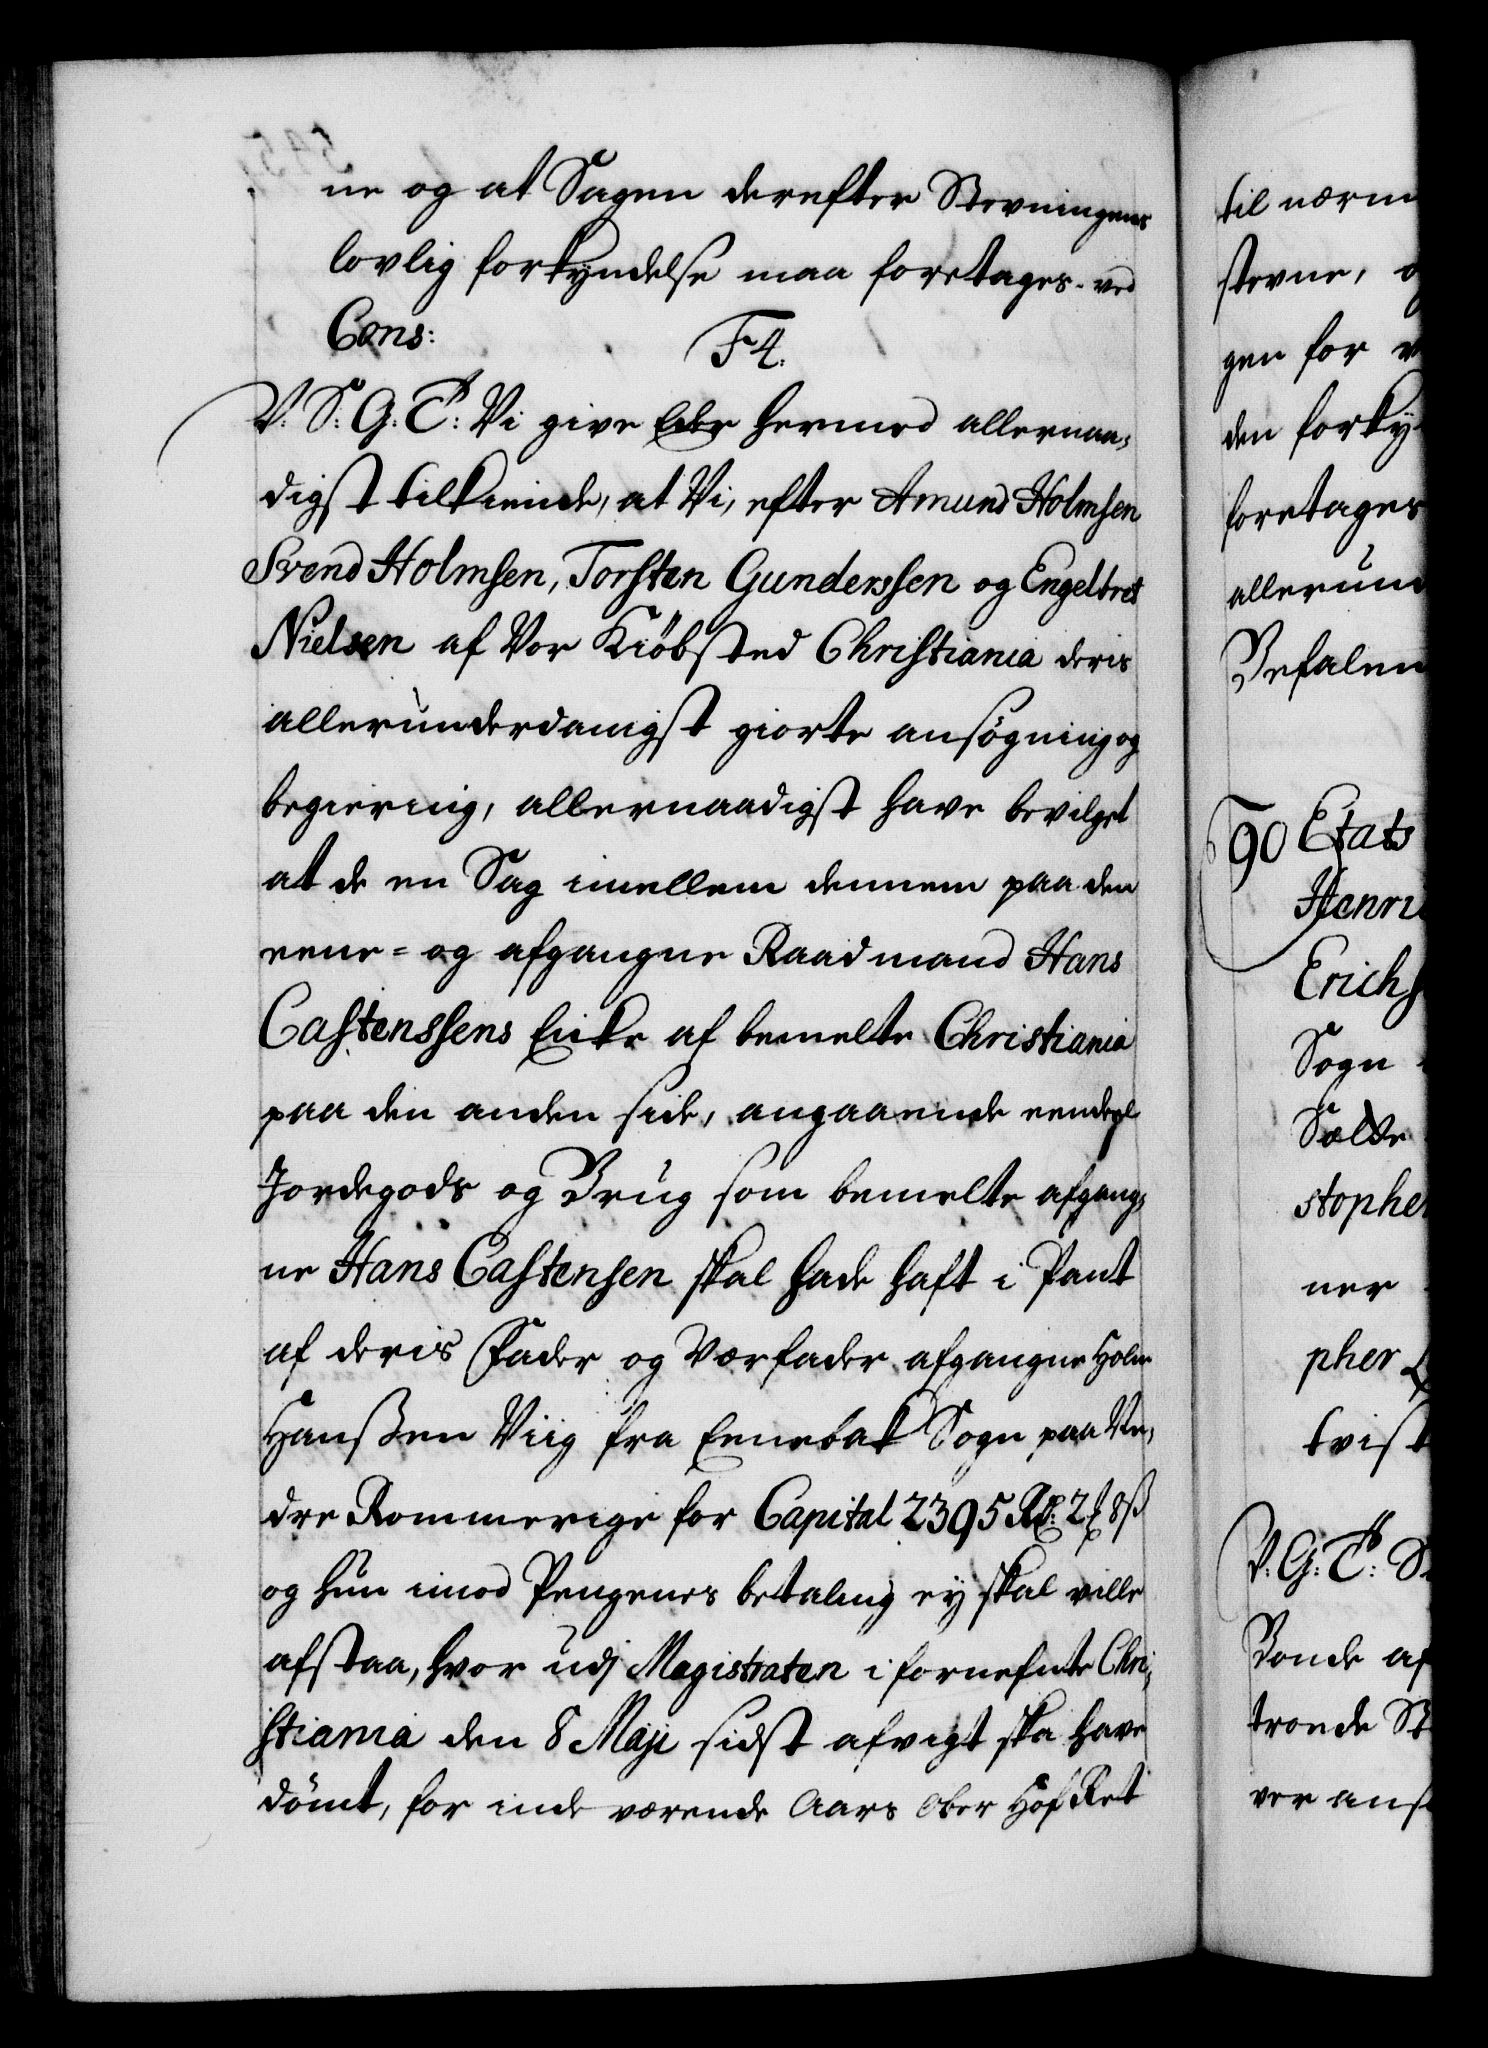 ne og at Sagen derefter Stevningens
lovlig forkyndelse maa foretages. ved
Cons:
F 4.
V. S: G: T: Vi give Eder hermed allernaa,
digst tilkiende, at Vi, efter Amund Holmsen
Svend Holmsen, Torsten Gunderssen og Engelbret
Nielsen af Vor Kiöbsted Christiania deris
allerunderdanigst giorte ansøgning og
begiering, allernaadigst have bevilget
at de en Sag imellem dennem paa den
eene= og afgangne Raadmand Hans
Castenssens Enke af bemelte Christiania
paa den anden side, angaaende eendeel
Jordegods og Brug som bemelte afgang,
ne Hans Castensen skal hade haft i Pant
af deris Fader og Værfader afgangne Holm
Hanßen Viig fra Enebak Sogn paa Ne,
dre Rommerige for Capital 2395 Rd: 2 ß
og hun imod Pengenes betaling ey skal ville
afstaa, hvor udj Magistraten i fornefnte Chri,
stiania den 8 Maji sidst afvigt ska have
dömt, for inde værende Aars Ober Hof Ret
til nærm
stevne, o
gen for
den forky
foretages
allerun
Befalen
90 Etats
Henri
Erichs
Sogn
stopher
ner
pher
tvist
V: G: T: S
Bonde af
tronde St
ver ans